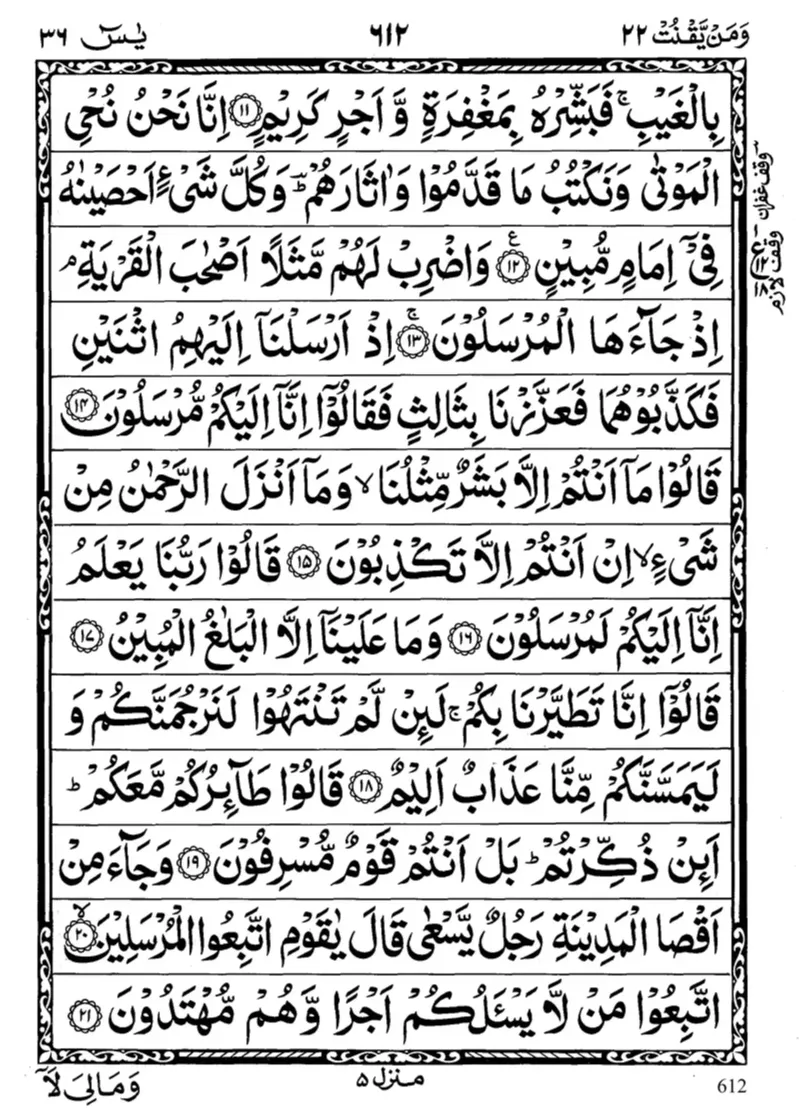 وَمَنْ يَّقْنُتْ ٢٢ ٦١٢ يٰسٓ ٣٦
بِالْغَيْبِ ۚ فَبَشِّرْهُ بِمَغْفِرَةٍ وَّ اَجْرٍ كَرِيْمٍ ﴿۱۱﴾ اِنَّا نَحْنُ نُحْيِ
الْمَوْتٰى وَنَكْتُبُ مَا قَدَّمُوْا وَاٰثَارَهُمْ ؕ وَكُلَّ شَىْءٍ اَحْصَيْنٰهُ
فِىْٓ اِمَامٍ مُّبِيْنٍ ﴿۱۲﴾ ع وَاضْرِبْ لَهُمْ مَّثَلًا اَصْحٰبَ الْقَرْيَةِ ۘ
اِذْ جَآءَهَا الْمُرْسَلُوْنَ ﴿۱۳﴾ ۚ اِذْ اَرْسَلْنَاۤ اِلَيْهِمُ اثْنَيْنِ
فَكَذَّبُوْهُمَا فَعَزَّزْنَا بِثَالِثٍ فَقَالُوْۤا اِنَّاۤ اِلَيْكُمْ مُّرْسَلُوْنَ ﴿۱۴﴾
قَالُوْا مَاۤ اَنْتُمْ اِلَّا بَشَرٌ مِّثْلُنَا ۙ وَمَاۤ اَنْزَلَ الرَّحْمٰنُ مِنْ
شَىْءٍ ۙ اِنْ اَنْتُمْ اِلَّا تَكْذِبُوْنَ ﴿۱۵﴾ قَالُوْا رَبُّنَا يَعْلَمُ
اِنَّاۤ اِلَيْكُمْ لَمُرْسَلُوْنَ ﴿۱۶﴾ وَمَا عَلَيْنَاۤ اِلَّا الْبَلٰغُ الْمُبِيْنُ ﴿۱۷﴾
قَالُوْۤا اِنَّا تَطَيَّرْنَا بِكُمْ ۚ لَئِنْ لَّمْ تَنْتَهُوْا لَنَرْجُمَنَّكُمْ وَ
لَيَمَسَّنَّكُمْ مِّنَّا عَذَابٌ اَلِيْمٌ ﴿۱۸﴾ قَالُوْا طَآئِرُكُمْ مَّعَكُمْ ؕ
اَئِنْ ذُكِّرْتُمْ ؕ بَلْ اَنْتُمْ قَوْمٌ مُّسْرِفُوْنَ ﴿۱۹﴾ وَجَآءَ مِنْ
اَقْصَا الْمَدِيْنَةِ رَجُلٌ يَّسْعٰى قَالَ يٰقَوْمِ اتَّبِعُوا الْمُرْسَلِيْنَ ﴿۲۰﴾ ۙ
اتَّبِعُوْا مَنْ لَّا يَسْـَٔلُكُمْ اَجْرًا وَّهُمْ مُّهْتَدُوْنَ ﴿۲۱﴾
وقف غفران
وقف لازم
منزل ۵
وَمَالِىَ لَاۤ
612